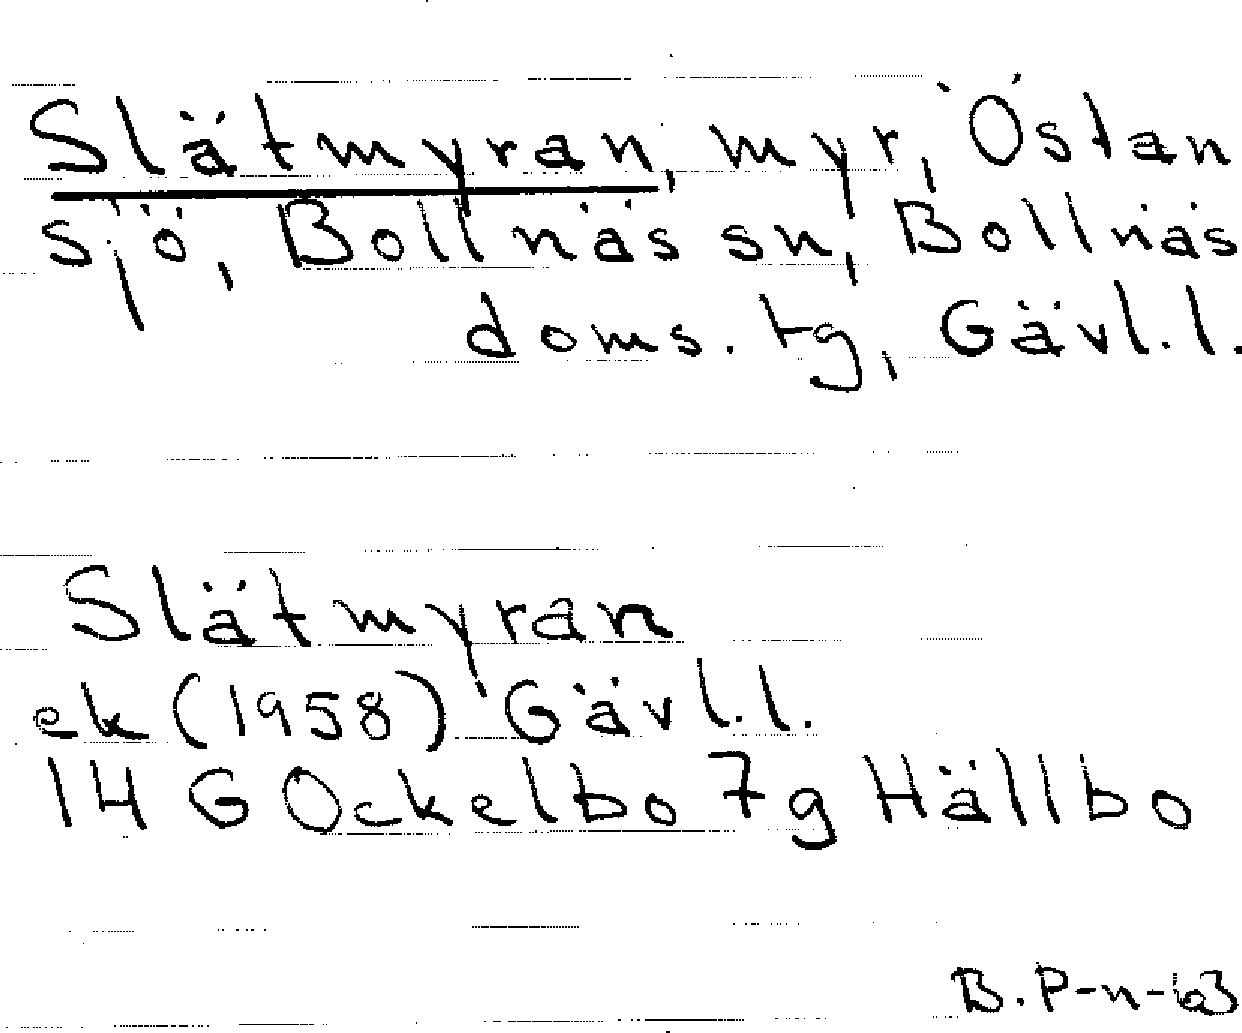 Slätmyran, myr, Östan
sjö, Bollnäs sn, Bollnäs
doms. tg, Gävl.l.
Slätmyran
ek (1958) Gävl.l.
14 G Ockelbo 7g Hällbo
B. P-n-63